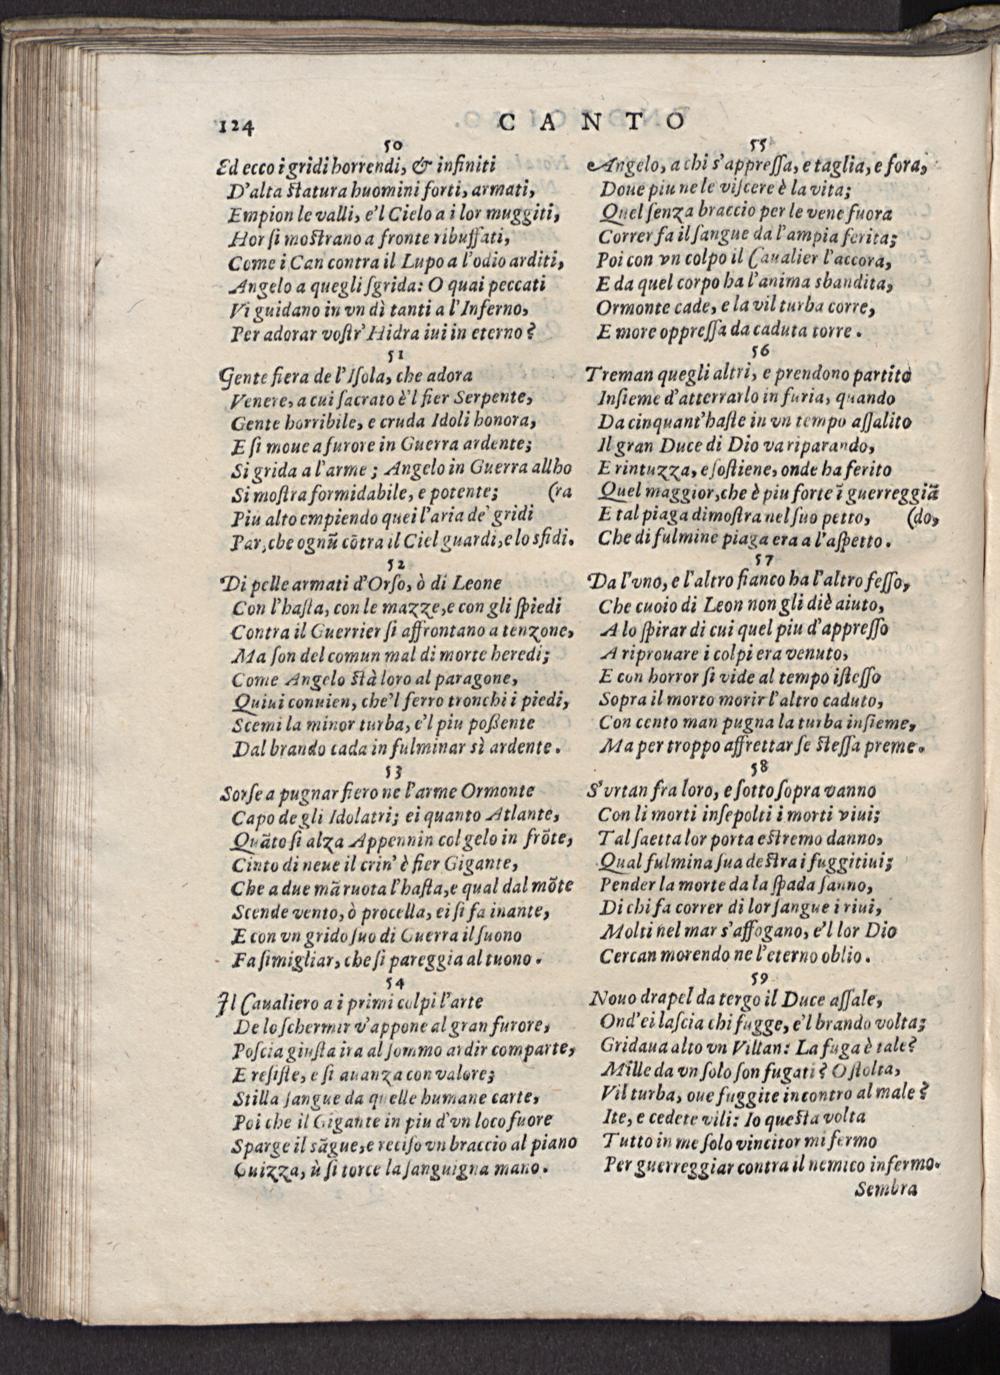 124
CANTO
50
Ed ecco i gridi horrendi, & infiniti
D'alta ſtatura huomini forti, armati,
Empion le valli, e'l Cielo a i lor muggiti,
Hor ſi moſtrano a fronte ribuffati,
Come i Can contra il Lupo a l'odio arditi,
Angelo a quegli ſgrida: O quai peccati
Vi guidano in vn dì tanti a l'Inferno,
Per adorar voſtr'Hidra iui in eterno?
51
Gente fiera de l'Iſola, che adora
Venere, a cui ſacrato è'l fier Serpente,
Gente horribile, e cruda Idoli honora,
E ſi moue a furore in Guerra ardente;
Si grida a l'arme; Angelo in Guerra allho
Si moſtra formidabile, e potente; (ra
Piu alto empiendo quei l'aria de' gridi
Par, che ognũ cõtra il Ciel guardi, e lo sfidi.
52
Di pelle armati d'Orſo, ò di Leone
Con l'haſta, con le mazze, e con gli ſpiedi
Contra il Guerrier ſi affrontano a tenzone,
Ma ſon del comun mal di morte heredi;
Come Angelo ſtà loro al paragone,
Quiui conuien, che'l ferro tronchi i piedi,
Scemi la minor turba, e'l piu poßente
Dal brando cada in fulminar sì ardente.
53
Sorſe a pugnar fiero ne l'arme Ormonte
Capo de gli Idolatri; ei quanto Atlante,
Quãto ſi alza Appennin col gelo in frõte,
Cinto di neue il crin' è fier Gigante,
Che a due mã ruota l'haſta, e qual dal mõte
Scende vento, ò procella, ei ſi fa inante,
E con vn grido ſuo di Guerra il ſuono
Fa ſimigliar, che ſi pareggia al tuono.
54
Il Caualiero a i primi colpi l'arte
De lo ſchermir v'appone al gran furore,
Poſcia giuſta ira al ſommo ardir comparte,
E reſiſte, e ſi auanza con valore;
Stilla ſangue da quelle humane carte,
Poi che il Gigante in piu d'vn loco fuore
Sparge il sãgue, e reciſo vn braccio al piano
Guizza, ù ſi torce la ſanguigna mano.
55
Angelo, a chi s'appreſſa, e taglia, e fora,
Doue piu ne le viſcere è la vita;
Quel ſenza braccio per le vene fuora
Correr fa il ſangue da l'ampia ferita;
Poi con vn colpo il Caualier l'accora,
E da quel corpo ha l'anima sbandita,
Ormonte cade, e la vil turba corre,
E more oppreſſa da caduta torre.
56
Treman quegli altri, e prendono partito
Inſieme d'atterrarlo in furia, quando
Da cinquant'haſte in vn tempo aſſalito
Il gran Duce di Dio va riparando,
E rintuzza, e ſoſtiene, onde ha ferito
Quel maggior, che è piu forte ĩ guerreggiã
E tal piaga dimoſtra nel ſuo petto, (do,
Che di fulmine piaga era a l'aſpetto.
57
Da l'vno, e l'altro fianco ha l'altro feſſo,
Che cuoio di Leon non gli diè aiuto,
A lo ſpirar di cui quel piu d'appreſſo
A riprouare i colpi era venuto,
E con horror ſi vide al tempo iſteſſo
Sopra il morto morir l'altro caduto,
Con cento man pugna la turba inſieme,
Ma per troppo affrettar ſe ſteſſa preme.
58
S'vrtan fra loro, e ſotto ſopra vanno
Con li morti inſepolti i morti viui;
Tal ſaetta lor porta eſtremo danno,
Qual fulmina ſua deſtra i fuggitiui;
Pender la morte da la ſpada ſanno,
Di chi fa correr di lor ſangue i riui,
Molti nel mar s'affogano, e'l lor Dio
Cercan morendo ne l'eterno oblio.
59
Nouo drapel da tergo il Duce aſſale,
Ond'ei laſcia chi fugge, e'l brando volta;
Gridaua alto vn Villan: La fuga è tale?
Mille da vn ſolo ſon fugati? O ſtolta,
Vil turba, oue fuggite incontro al male?
Ite, e cedete vili: Io queſta volta
Tutto in me ſolo vincitor mi fermo
Per guerreggiar contra il nemico infermo.
Sembra